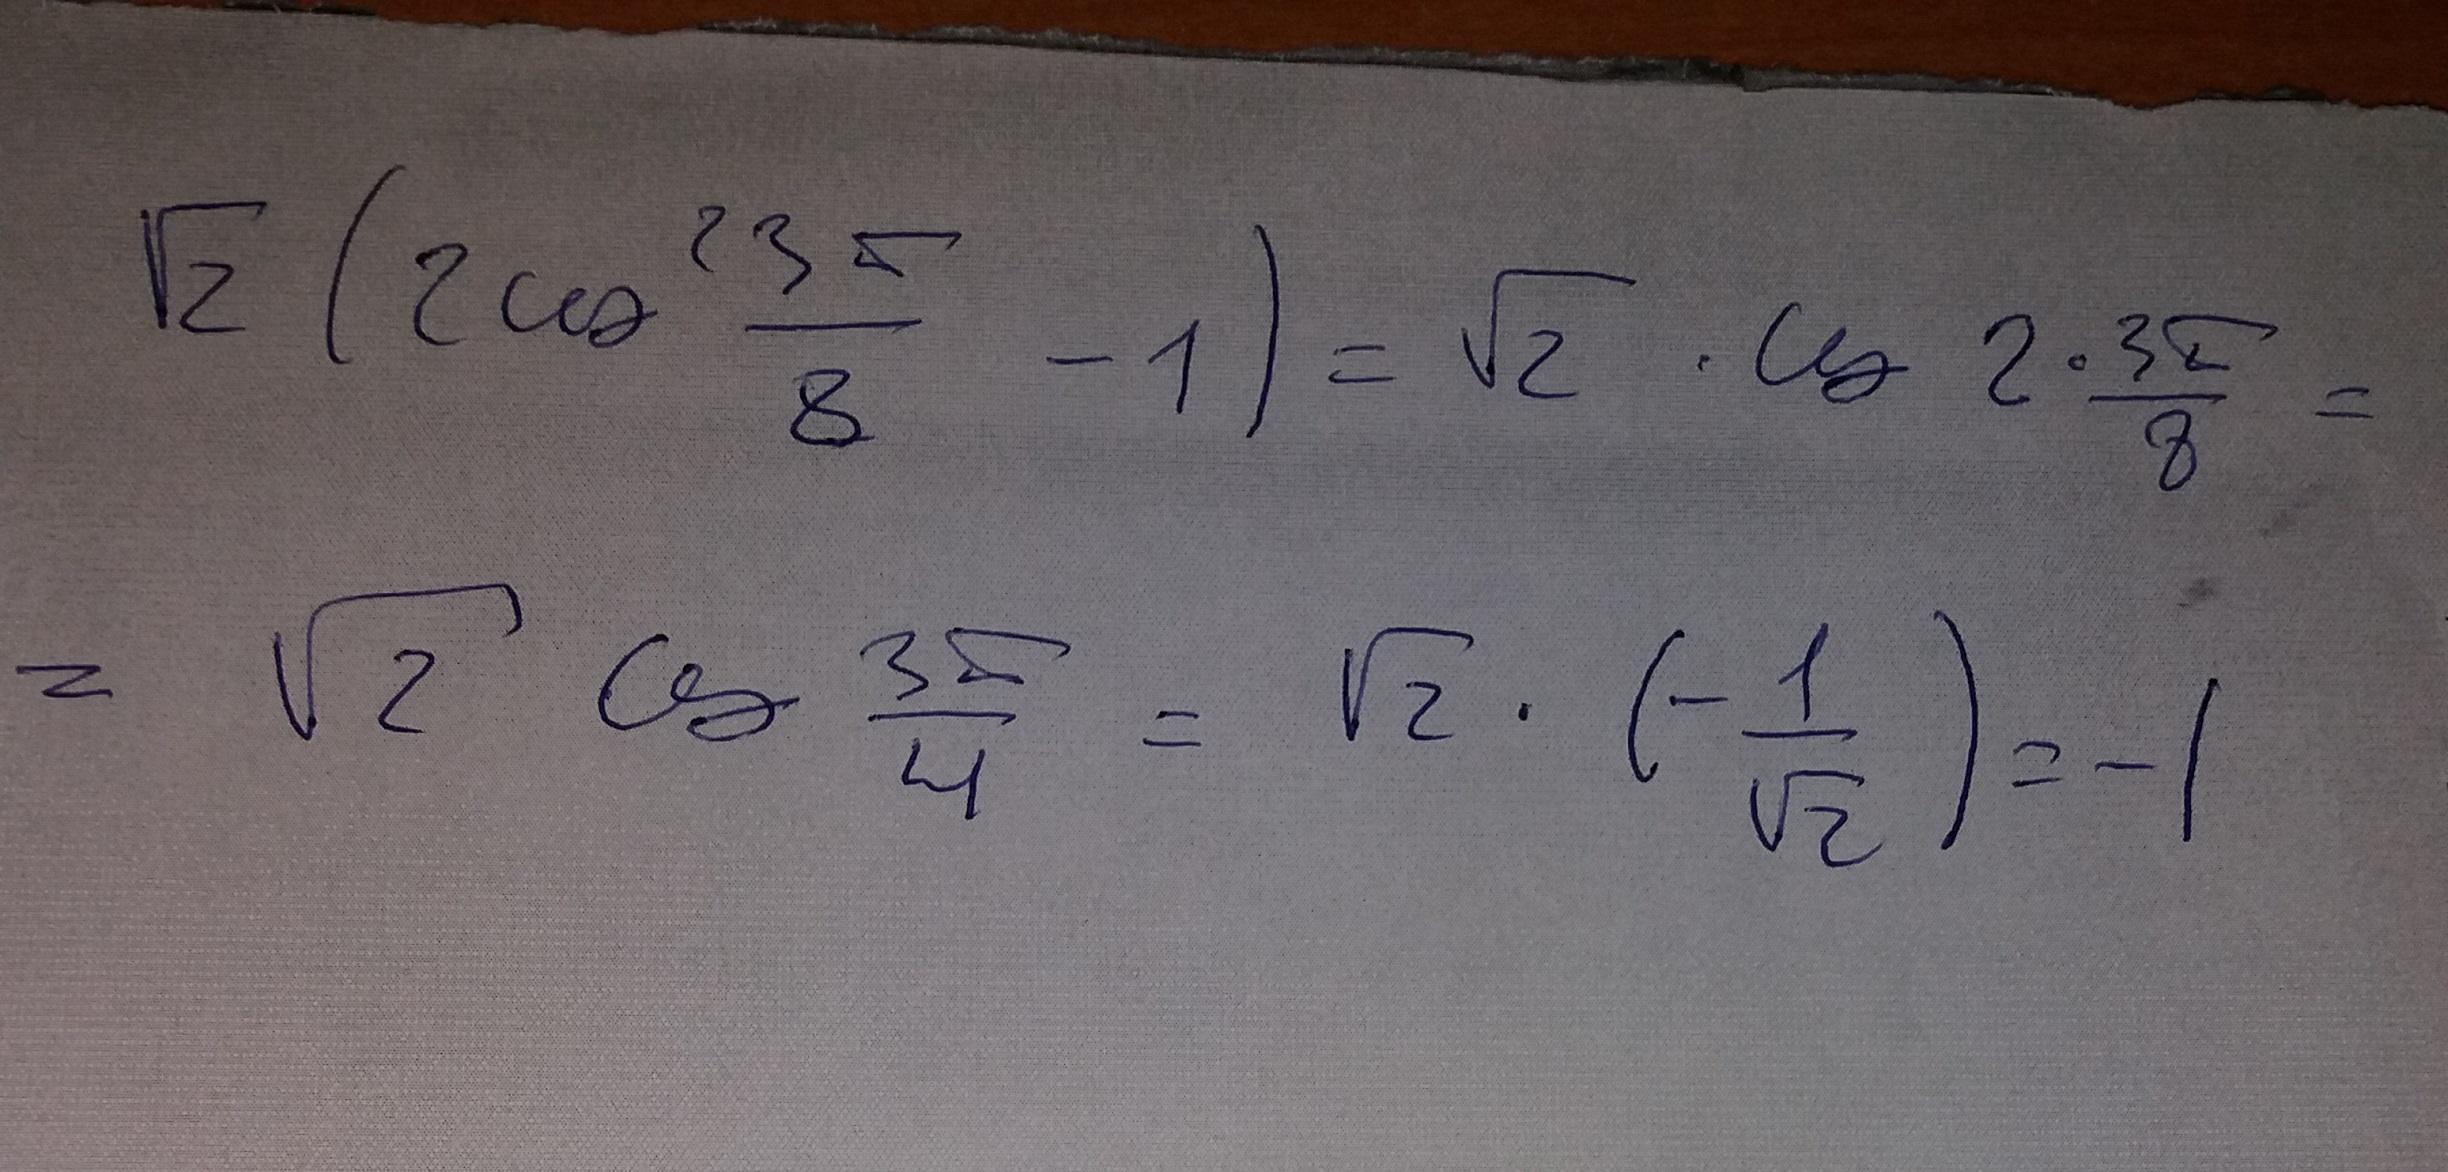 √2 (2cos² 3π/8 - 1) = √2 · cos 2 · 3π/8 =
= √2 cos 3π/4 = √2 · (- 1/√2) = -1